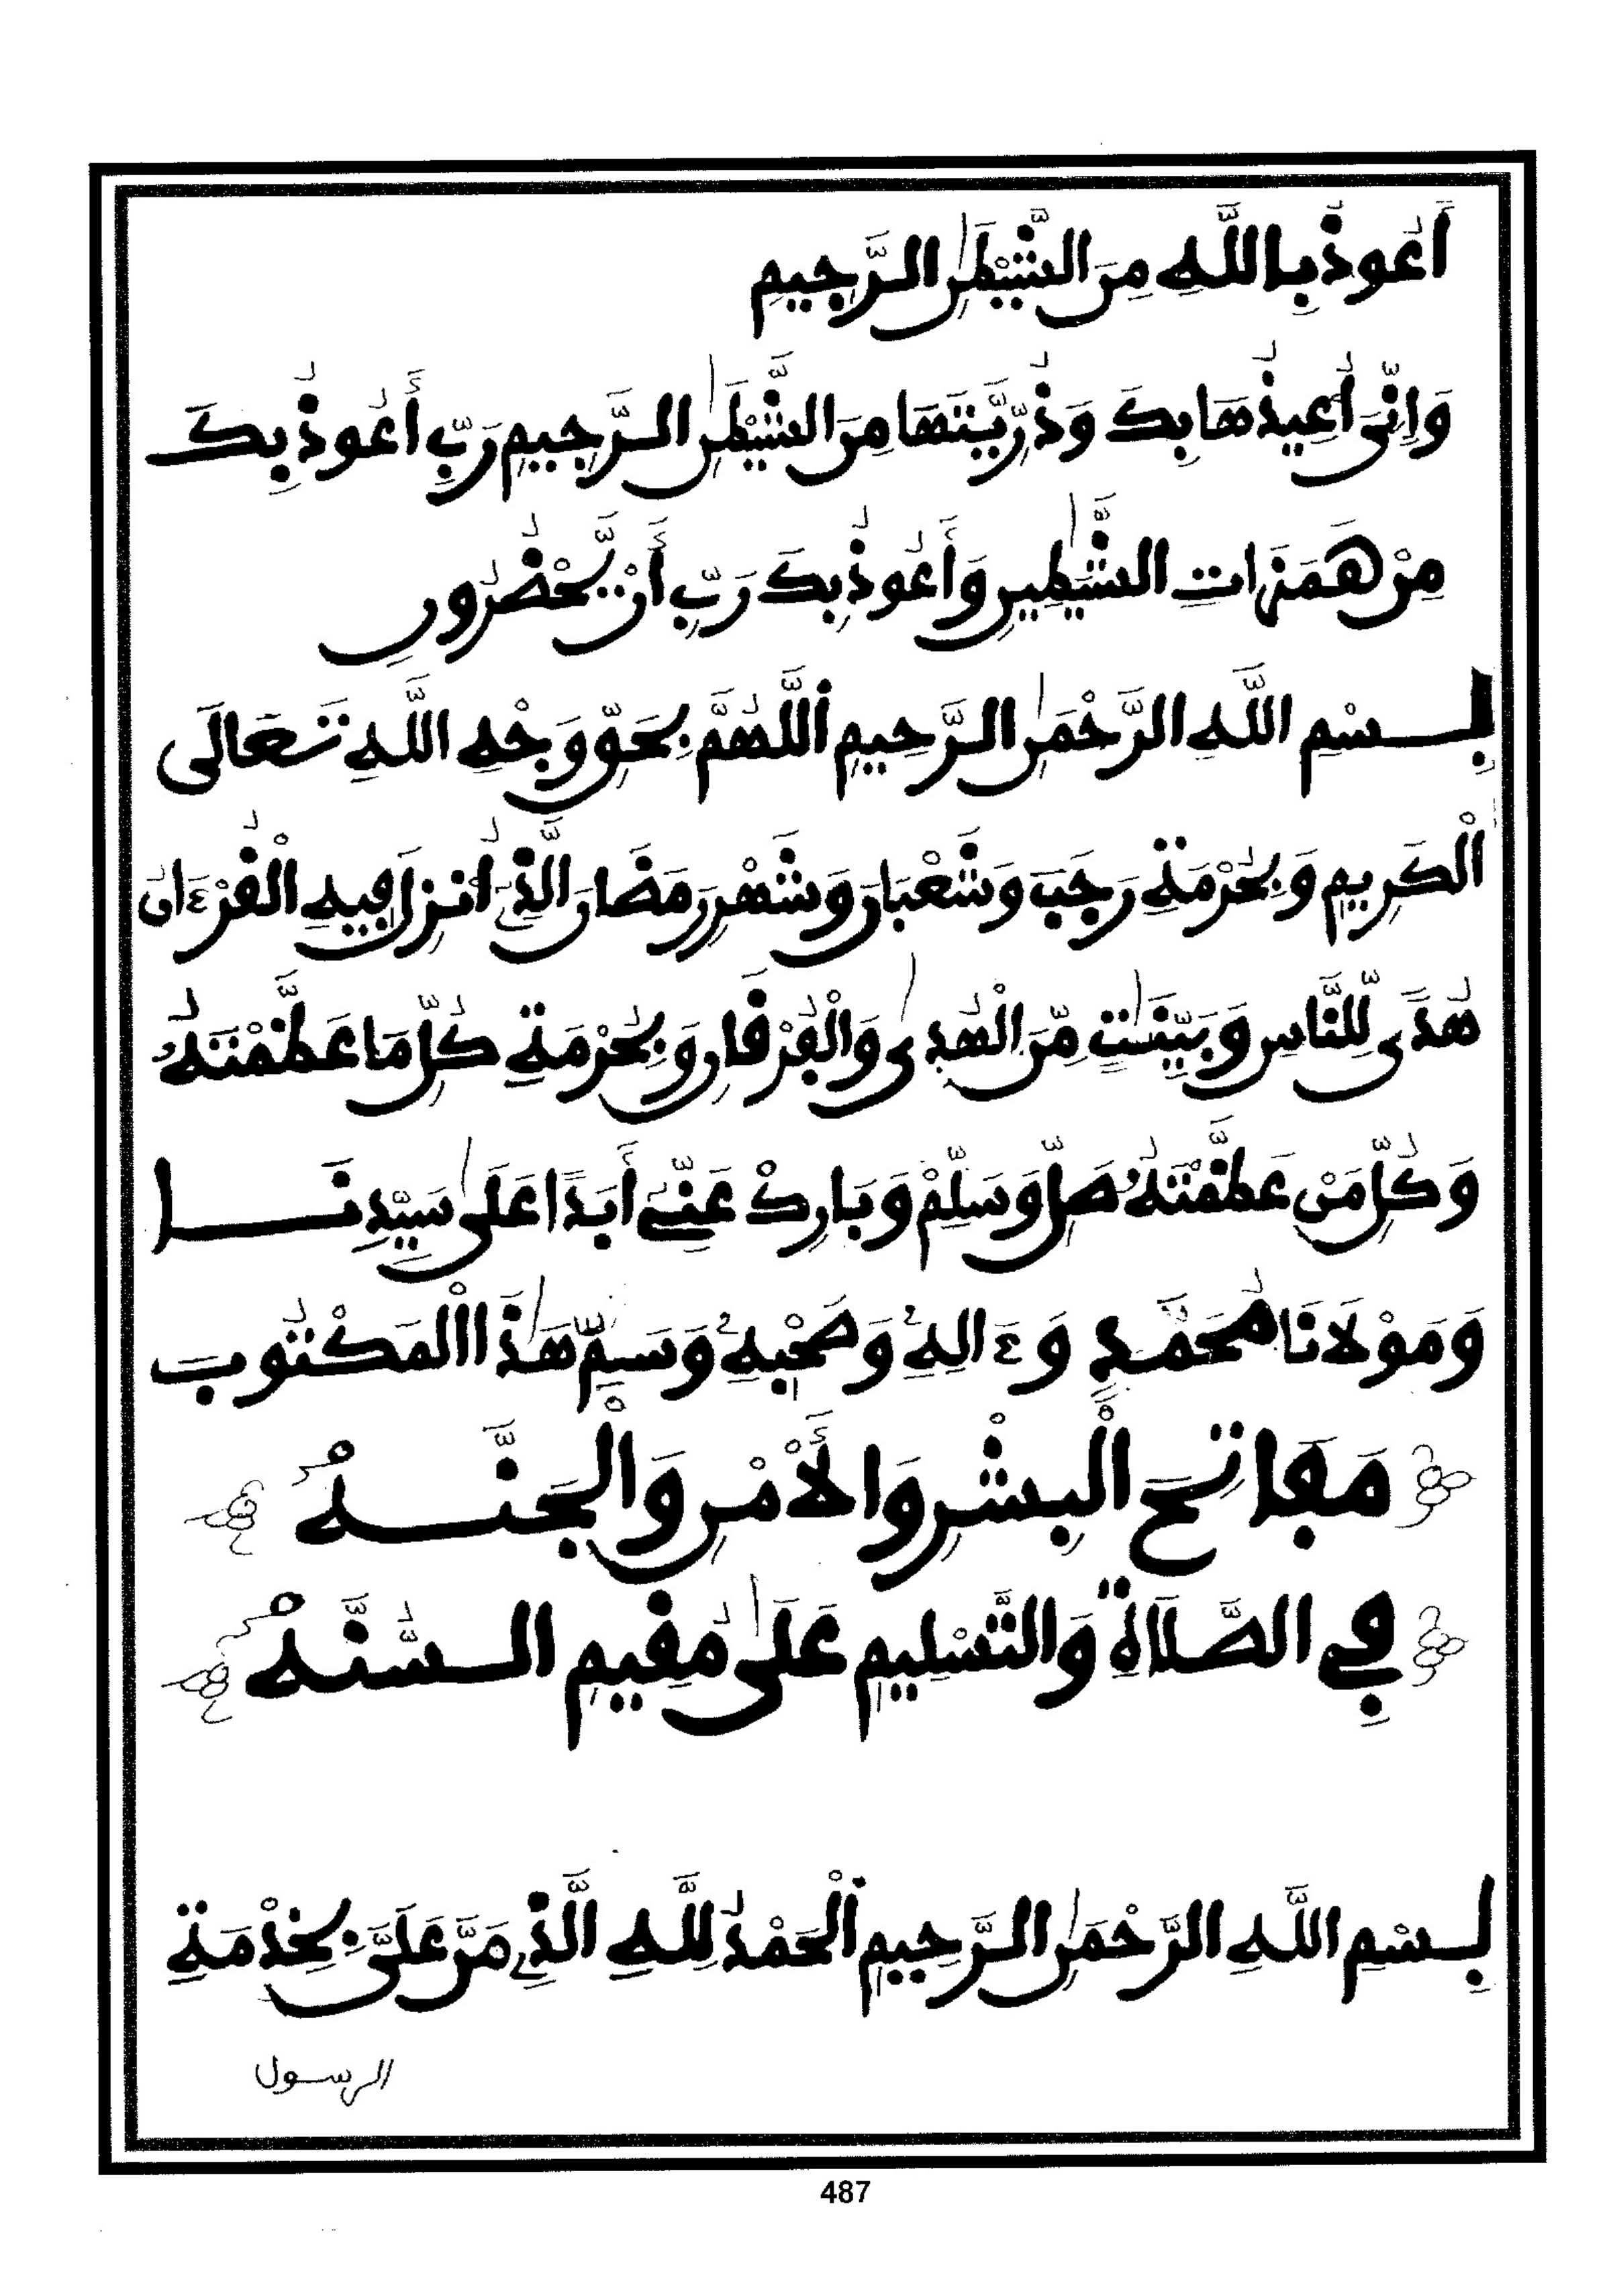 أَعُوذُ بِاللَّهِ مِنَ الشَّيْطَٰنِ الرَّجِيمِ
وَإِنِّيَ أُعِيذُهَا بِكَ وَذُرِّيَّتَهَا مِنَ الشَّيْطَٰنِ الرَّجِيمِ رَبِّ أَعُوذُ بِكَ
مِنْ هَمَزَاتِ الشَّيَٰطِينِ وَأَعُوذُ بِكَ رَبِّ أَنْ يَّحْضُرُونِ
بِسْمِ اللَّهِ الرَّحْمَٰنِ الرَّحِيمِ اَللَّهُمَّ بِحَقِّ وَجْهِ اللَّهِ تَعَالَى
الْكَرِيمِ وَبِحُرْمَةِ رَجَبَ وَشَعْبَانَ وَشَهْرِ رَمَضَانَ الَّذِي أُنْزِلَ فِيهِ الْقُرْءَانُ
هُدًى لِّلنَّاسِ وَبَيِّنَٰتٍ مِّنَ الْهُدَىٰ وَالْفُرْقَانِ وَبِحُرْمَةِ كُلِّ مَا عَظَّمْتَهُ
وَكُلِّ مَنْ عَظَّمْتَهُ صَلِّ وَسَلِّمْ وَبَارِكْ عَنِّي أَبَدًا عَلَىٰ سَيِّدِنَا
وَمَوْلَانَا مُحَمَّدٍ وَءَالِهِ وَصَحْبِهِ وَسَمِّ هَٰذَا الْمَكْتُوبَ
مَفَاتِحَ الْبِشْرِ وَالْأَمْنِ وَالْجَنَّهْ
فِي الصَّلَاةِ وَالتَّسْلِيمِ عَلَىٰ مُقِيمِ السُّنَّهْ
بِسْمِ اللَّهِ الرَّحْمَٰنِ الرَّحِيمِ اَلْحَمْدُ لِلَّهِ الَّذِي مَنَّ عَلَيَّ بِخِدْمَةِ
الرسول
487